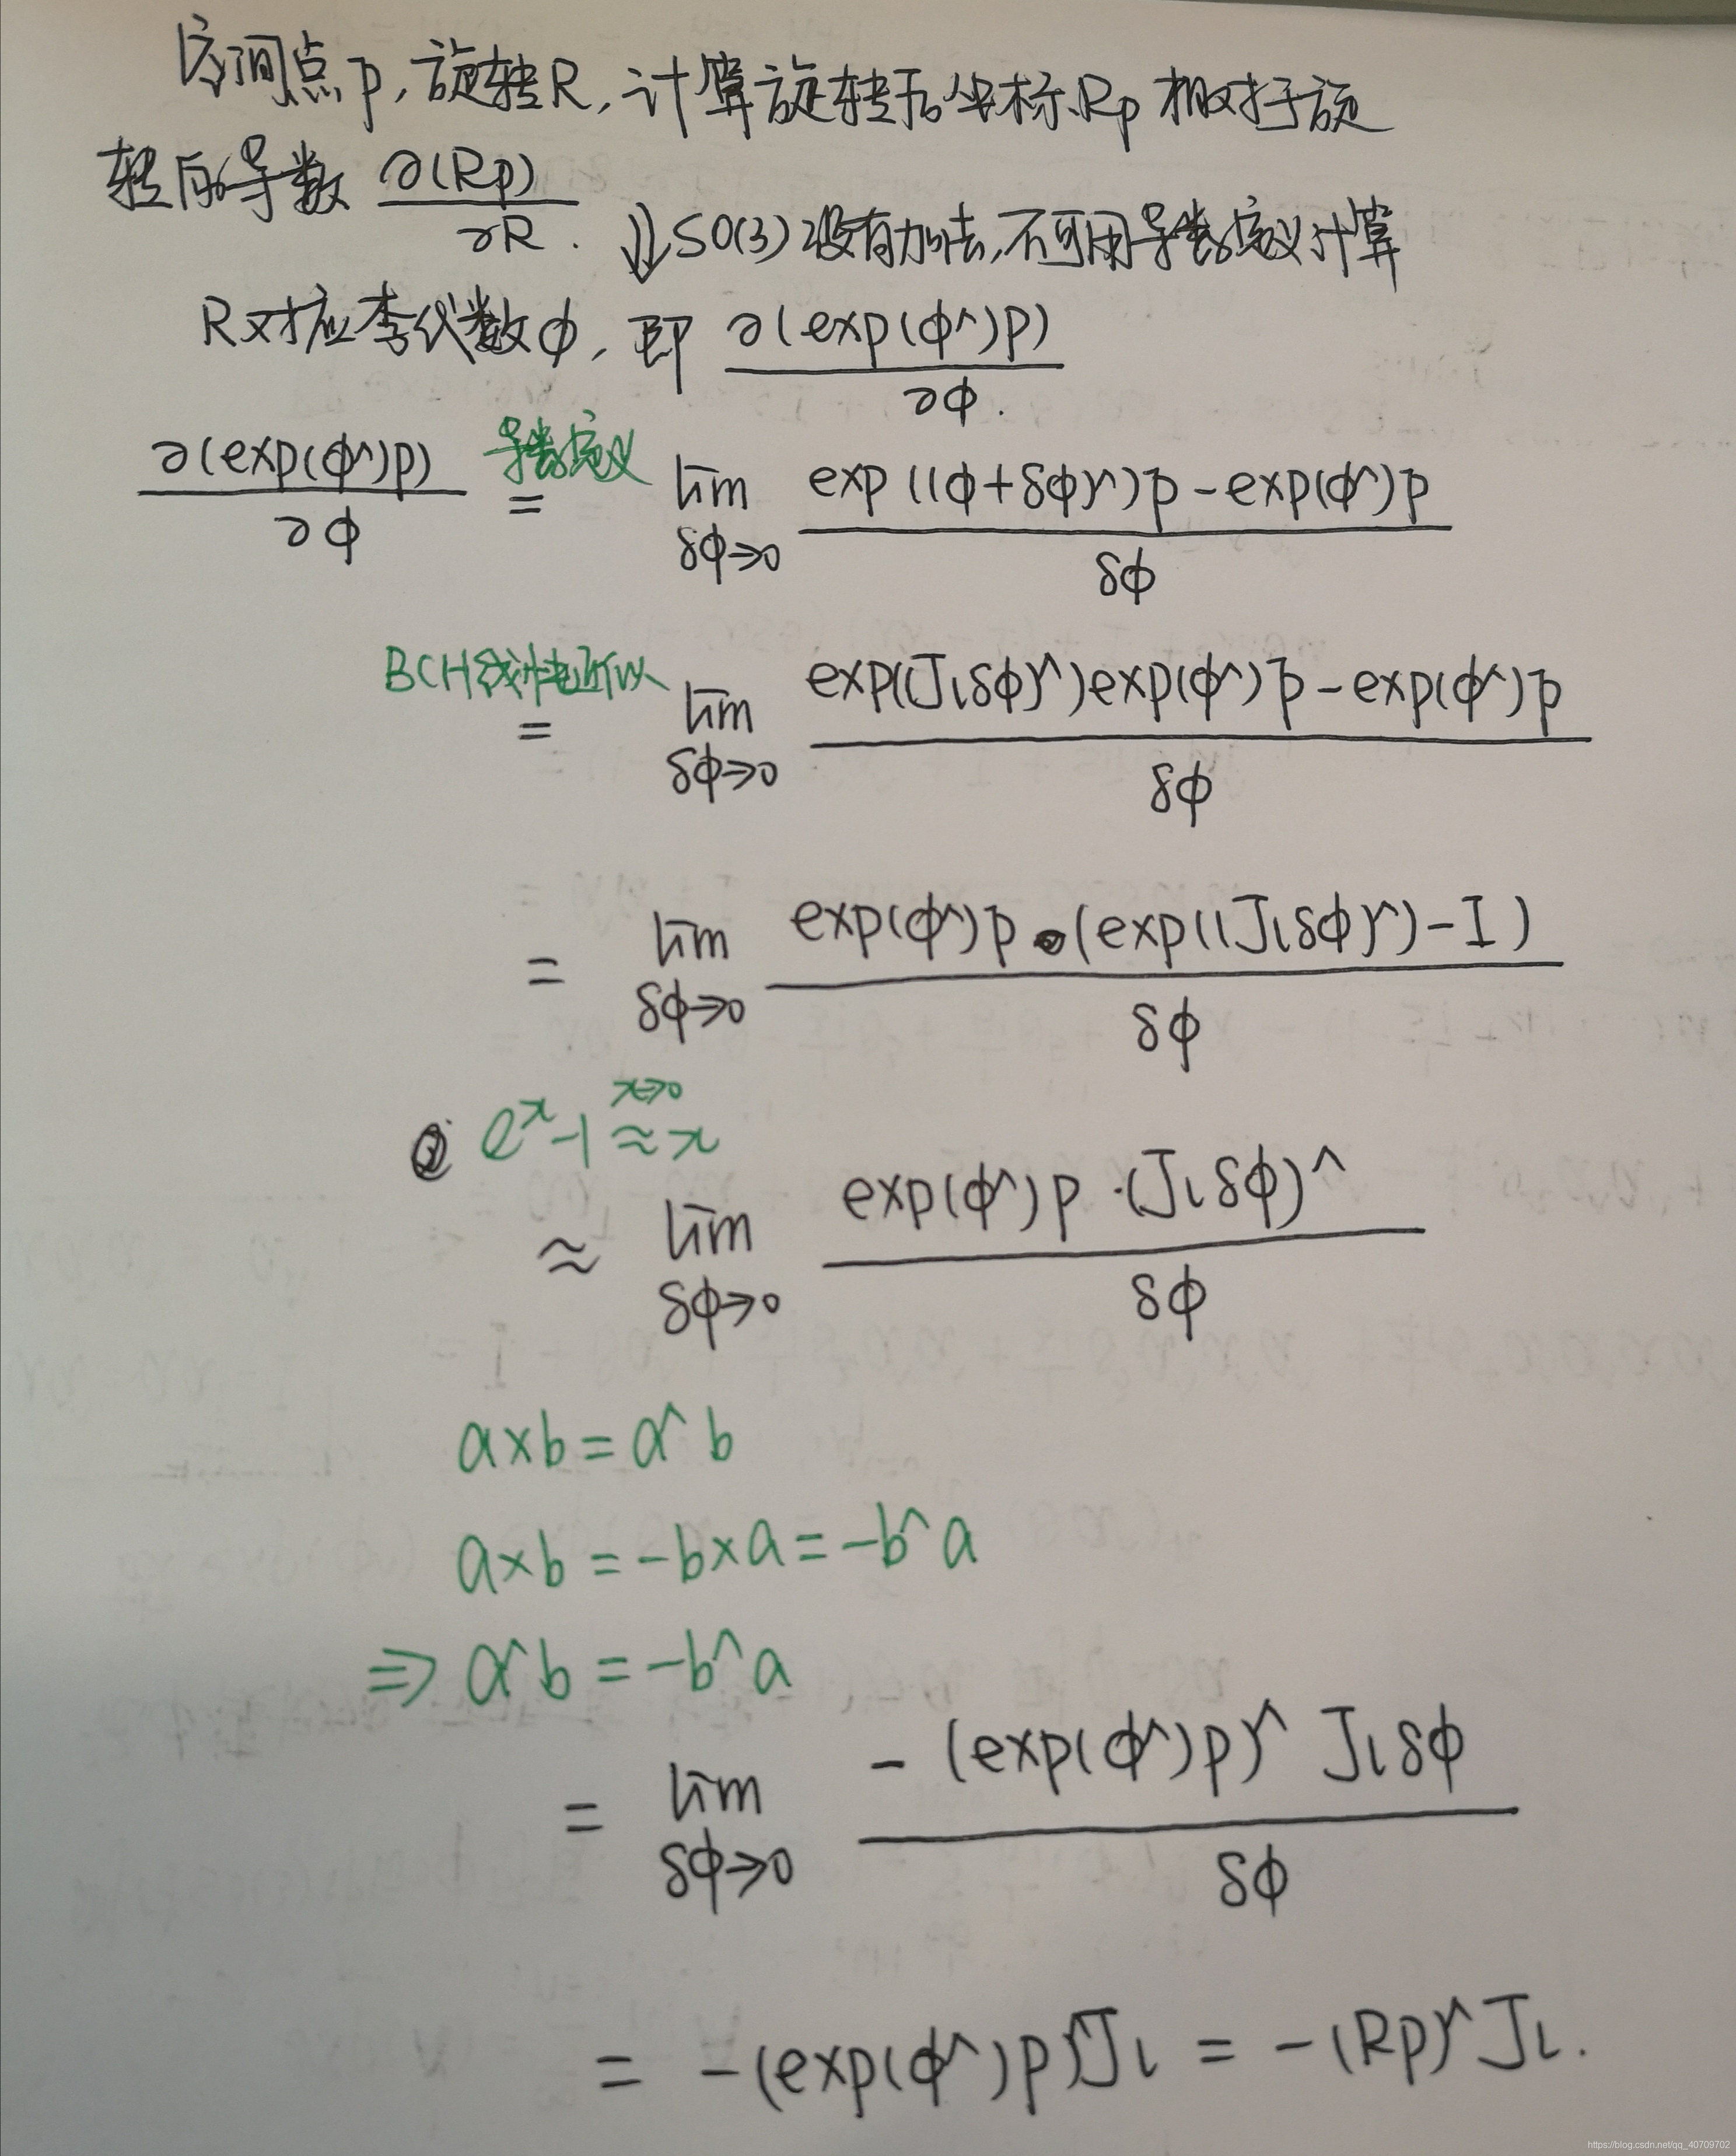 空间点p,旋转R,计算旋转后坐标Rp相对于旋
转的导数 ∂(Rp)/∂R. ⇓SO(3)没有加法,不可用导数定义计算
R对应李代数φ,即 ∂(exp(φ^)p)/∂φ.
∂(exp(φ^)p)/∂φ 导数定义 = lim δφ→0 exp((φ+δφ)^)p-exp(φ^)p / δφ
BCH线性近似 = lim δφ→0 exp((Jlδφ)^)exp(φ^)p-exp(φ^)p / δφ
= lim δφ→0 exp(φ^)p·(exp((Jlδφ)^)-I) / δφ
e^x-1 ≈ x x→0
≈ lim δφ→0 exp(φ^)p·(Jlδφ)^ / δφ
a×b=a^b
a×b=-b×a=-b^a
⇒ a^b=-b^a
= lim δφ→0 -(exp(φ^)p)^ Jlδφ / δφ
= -(exp(φ^)p)^Jl = -(Rp)^Jl.
https://blog.csdn.net/qq_40709702